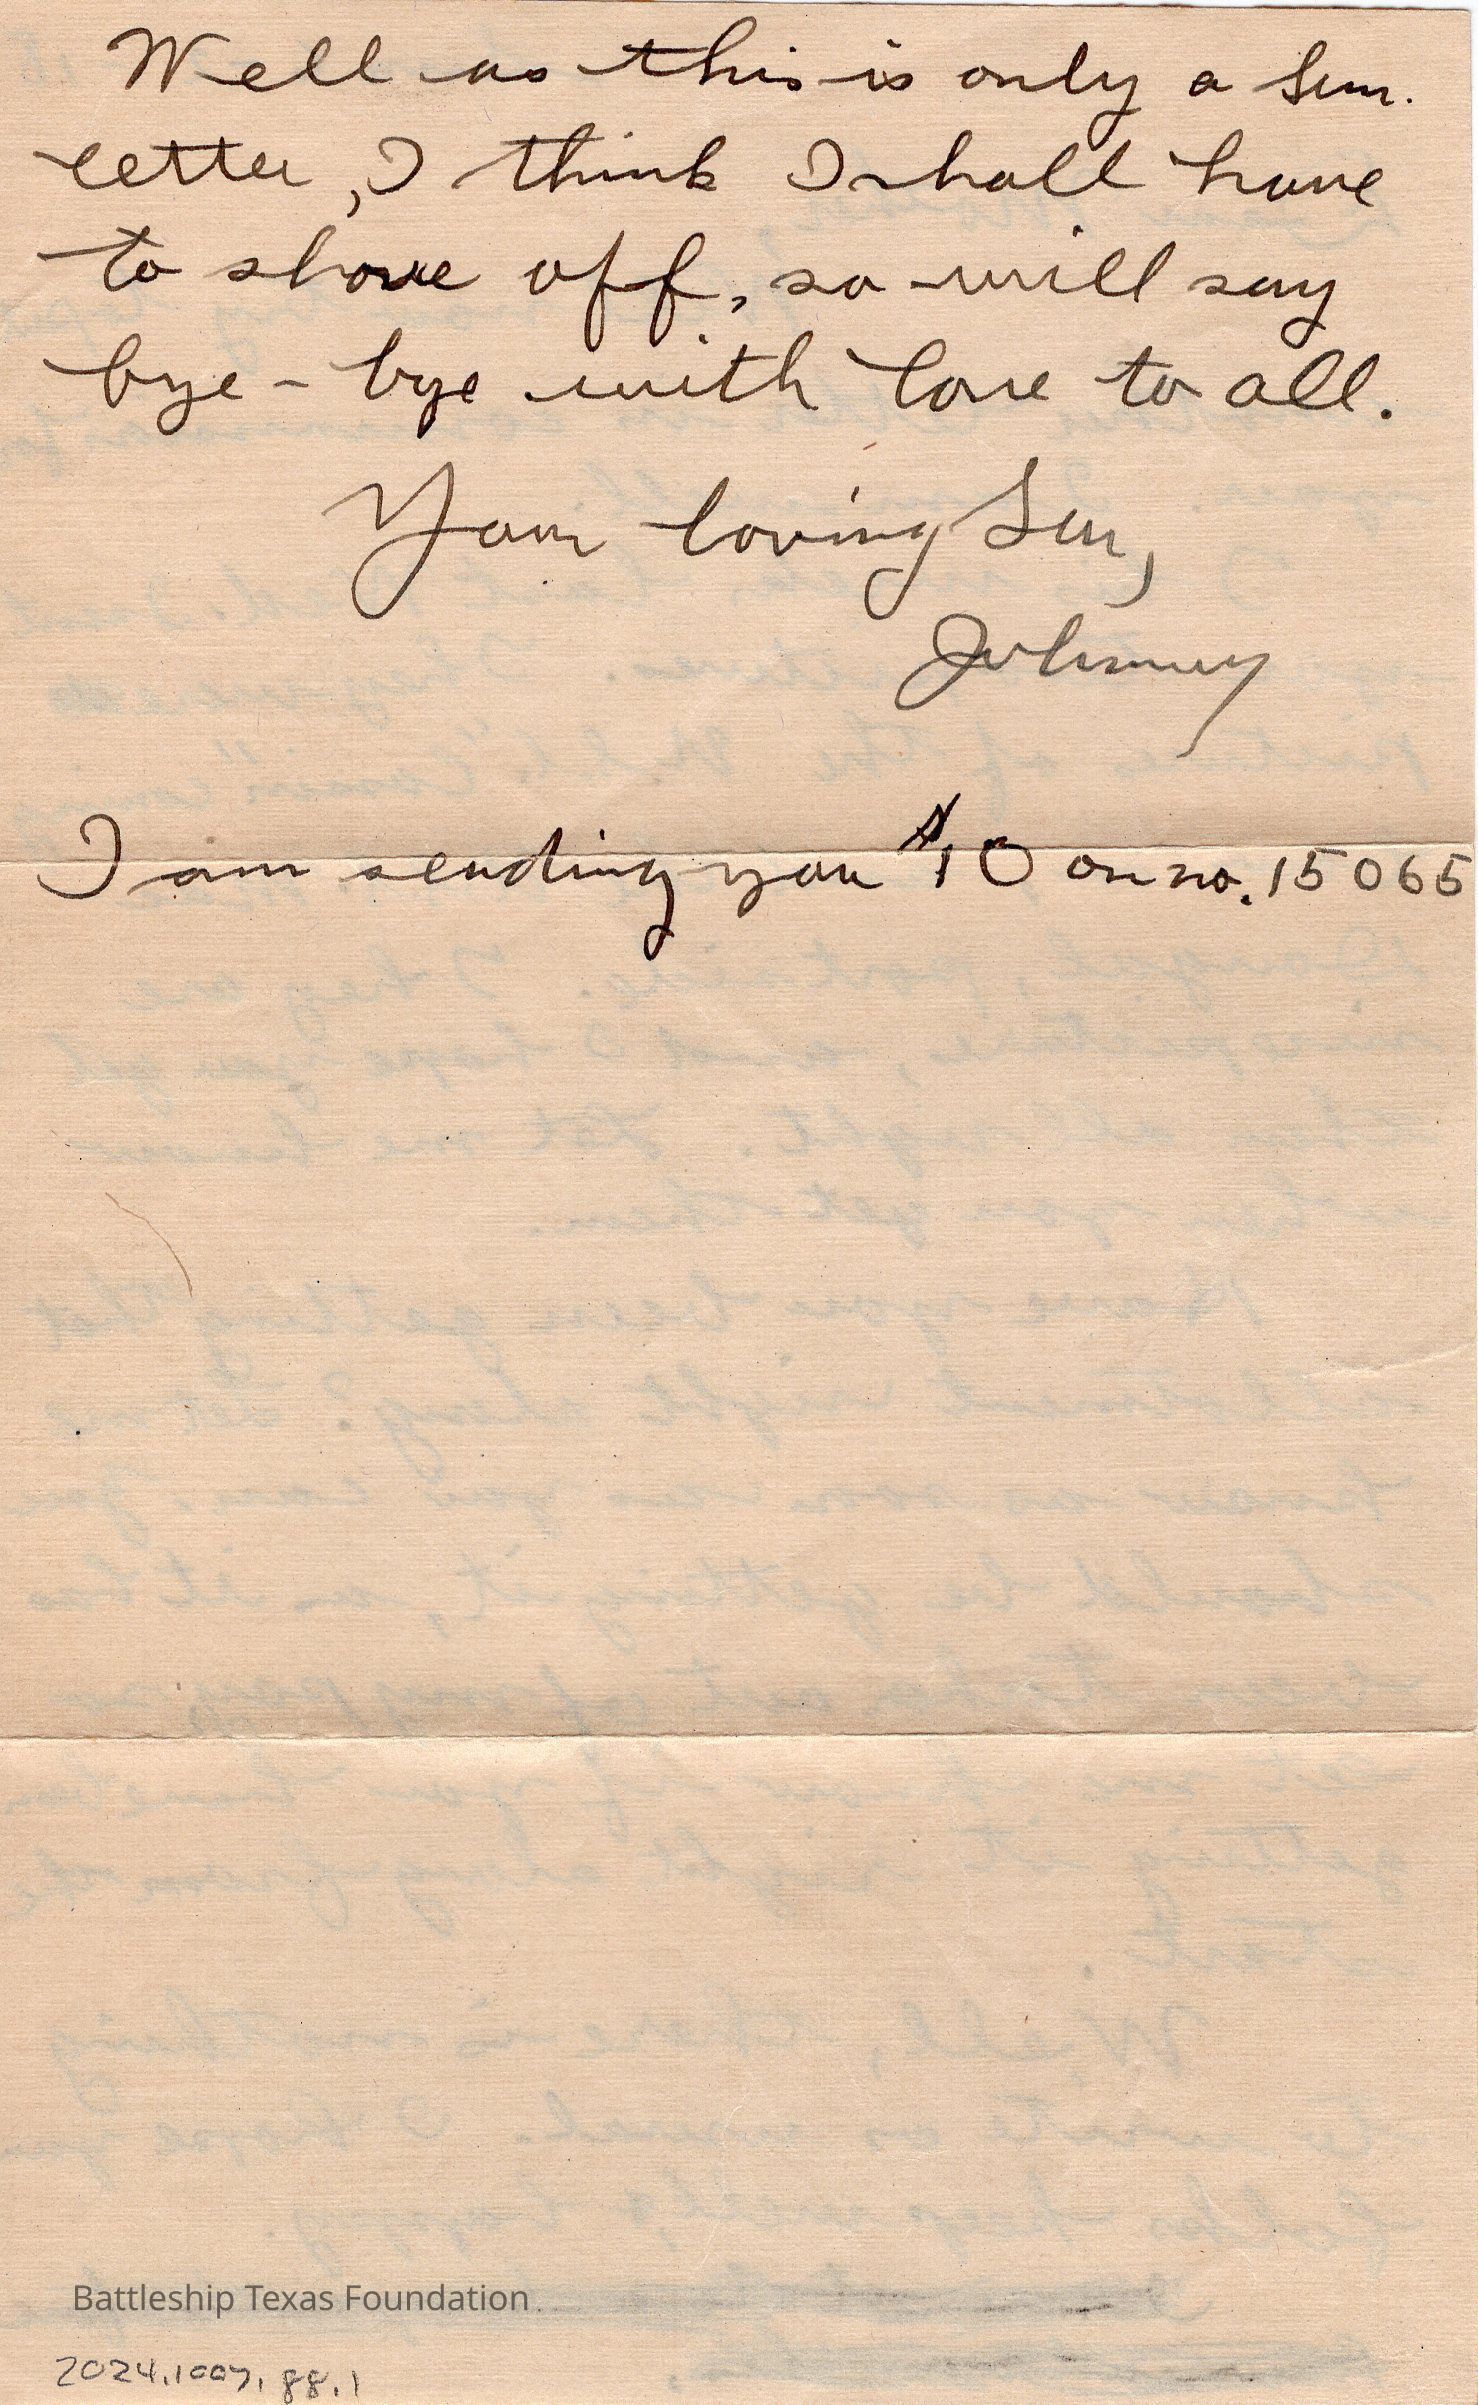 Well as this is only a Sun.
letter, I think I shall have
to shove off, so will say
bye-bye with love to all.
Your loving Son,
Johnney
I am sending you $10 on no. 15065
Battleship Texas Foundation
2024.1007.88.1